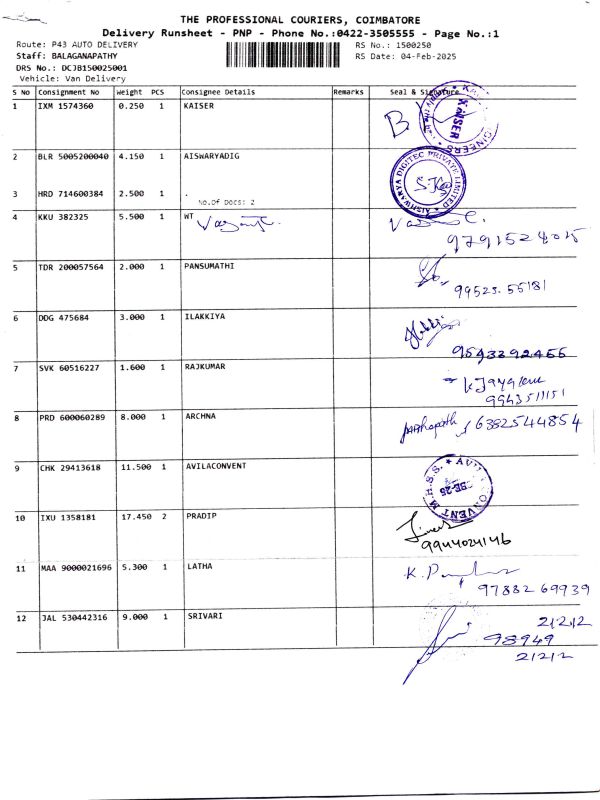 THE PROFESSIONAL COURIERS, COIMBATORE
Delivery Runsheet - PNP - Phone No.:0422-3505555 - Page No.:1
Route: P43 AUTO DELIVERY RS No.: 1500250
Staff: BALAGANAPATHY RS Date: 04-Feb-2025
DRS No.: DCJB150025001
Vehicle: Van Delivery
S No Consignment No Weight PCS Consignee Details Remarks Seal & Signature
1 IXM 1574360 0.250 1 KAISER
KAISER
2 BLR 5005200040 4.150 1 AISWARYADIG
AISHWARYA DIGITEC PRIVATE LIMITED
3 HRD 714600384 2.500 1 .
No.Of Docs: 2
4 KKU 382325 5.500 1 WT
9791524015
5 TDR 200057564 2.000 1 PANSUMATHI
99523.55181
6 DDG 475684 3.000 1 ILAKKIYA
9543392455
7 SVK 60516227 1.600 1 RAJKUMAR
9943511151
8 PRD 600060289 8.000 1 ARCHNA
6382544854
9 CHK 29413618 11.500 1 AVILACONVENT
10 IXU 1358181 17.450 2 PRADIP
9944024146
11 MAA 9000021696 5.300 1 LATHA
97882 69939
12 JAL 530442316 9.000 1 SRIVARI
21212
98949
21212